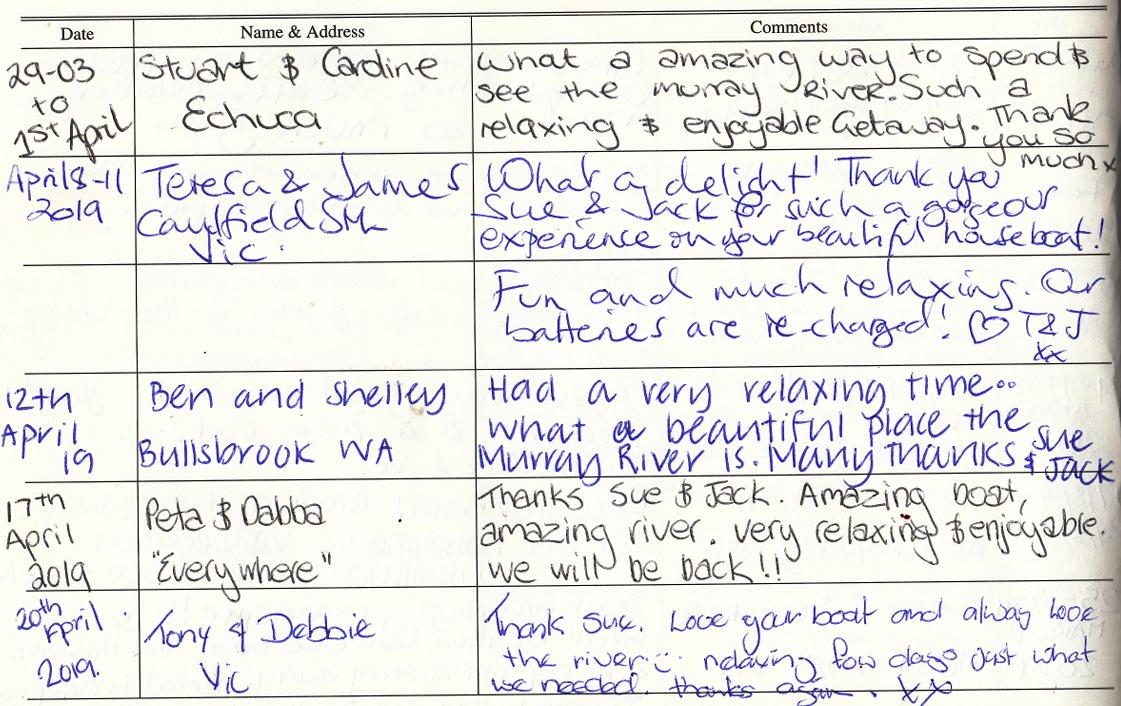 Date Name & Address Comments
29-03
to
1st April
Stuart & Caroline
Echuca
What a amazing way to spend &
see the murray River. Such a
relaxing & enjoyable Getaway. Thank
you so
much x
April 8-11
2019
Teresa & James
Caulfield Sth
Vic.
What a delight! Thank you
Sue & Jack for such a gorgeous
experience on your beautiful houseboat!
Fun and much relaxing. Our
batteries are re-charged! ♡ T&J
xx
12th
April
19
Ben and Shelley
Bullsbrook WA
Had a very relaxing time..
what a beautiful place the
Murray River is. Many thanks Sue
& Jack
17th
April
2019
Peta & Dabba
"Everywhere"
Thanks Sue & Jack. Amazing boat,
amazing river. very relaxing & enjoyable.
we will be back!!
20th
April
2019.
Tony & Debbie
Vic
Thank Sue. Love your boat and alway love
the river :) relaxing few days just what
we needed. thanks again. xx